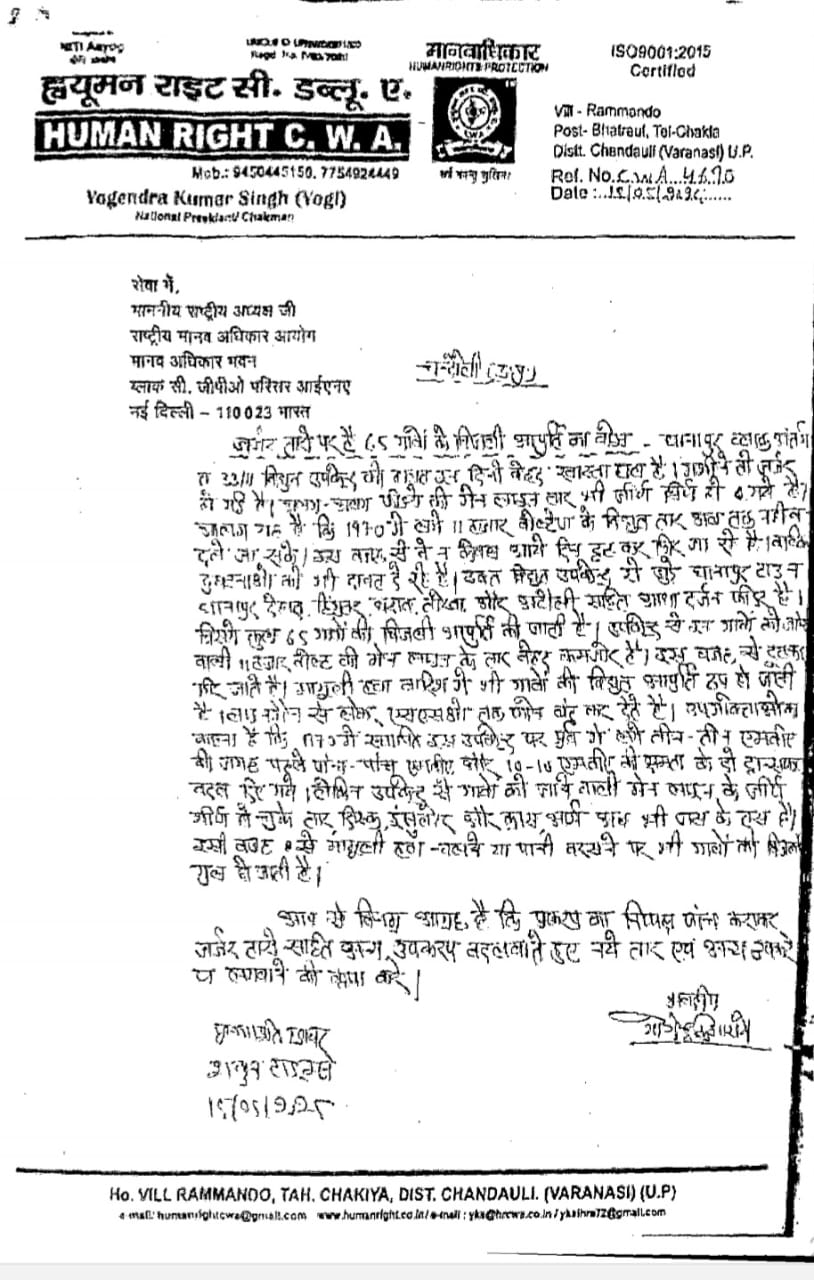 NITI Aayog
मानवाधिकार
HUMANRIGHTS PROTECTION
ISO9001:2015
Certified
ह्यूमन राइट सी. डब्लू. ए.
HUMAN RIGHT C. W. A.
Mob.: 9450445150, 7754924449
Yogendra Kumar Singh (Yogi)
National President/ Chairman
Vill - Rammando
Post- Bhatraul, Tel-Chakia
Distt. Chandauli (Varanasi) U.P.
Ref. No. C.W.A
Date :
सेवा में,
माननीय राष्ट्रीय अध्यक्ष जी
राष्ट्रीय मानव अधिकार आयोग
मानव अधिकार भवन
ब्लाक सी. जीपीओ परिसर आईएनए
नई दिल्ली – 110023 भारत
चन्दौली (उ०प्र०)
जर्जर तारों पर है 65 गांवों के बिजली आपूर्ति का बोझ - धानापुर ब्लाक अंतर्ग
त 33/11 विद्युत उपकेंद्र की हालत इन दिनों बेहद खास्ता हाल है। मशीनें तो जर्जर
हो गई है। अलग-अलग फीडरों की मेन लाइन तार भी जीर्ण शीर्ण हो गये है।
आलम यह है कि 1970 में लगे 11 हजार वोल्टेज के विद्युत तार अब तक नहीं
बदले जा सके। इस वजह से ये न सिर्फ आये दिन टूट कर गिर जा रहे है। बल्कि
दुर्घटनाओं को भी दावत दे रहे है। उक्त विद्युत उपकेंद्र से जुड़े धानापुर टाउन
धानापुर देहात, हिंगुतर, और सहित आधा दर्जन फीडर है।
जिससे कुल 65 गांवों की बिजली आपूर्ति की जाती है। उपकेंद्र से इन गांवों को जाने
वाली 11 हजार वोल्ट की मेन लाइन के तार बेहद कमजोर है। इस वजह से टूटकर
गिर जाते है। मामूली हवा बारिश में भी गांवों की विद्युत आपूर्ति ठप हो जाती
है। फोन बंद कर देते है। उपभोक्ताओं का
कहना है कि 1970 में स्थापित इस उपकेंद्र पर पूर्व में लगे तीन-तीन एमवीए
की जगह पहले पांच-पांच एमवीए और 10-10 एमवीए की क्षमता के दो ट्रांसफार्मर
बदल दिए गये। लेकिन उपकेंद्र से गांवों को जाने वाली मेन लाइन के जीर्ण
शीर्ण हो चुके तार, डिस्क, इंसुलेटर और क्रास आर्म आज भी जस के तस है।
इसी वजह से मामूली हवा चलने या पानी बरसने पर भी गांवों की बिजली
गुल हो जाती है।
आप से विनम्र आग्रह है कि प्रकरण का निष्पक्ष जांच कराकर
जर्जर तारों सहित अन्य उपकरण बदलवाते हुए नये तार एवं अन्य उपकर
ण लगवाने की कृपा करें।
भवदीय
योगेन्द्र कुमार सिंह
15/05/2025
Ho. VILL RAMMANDO, TAH. CHAKIYA, DIST. CHANDAULI. (VARANASI) (U.P)
e-mail: humanrightcwa@gmail.com www.humanright.co.in / e-mail : yks@hrcwa.co.in / yksihra72@gmail.com